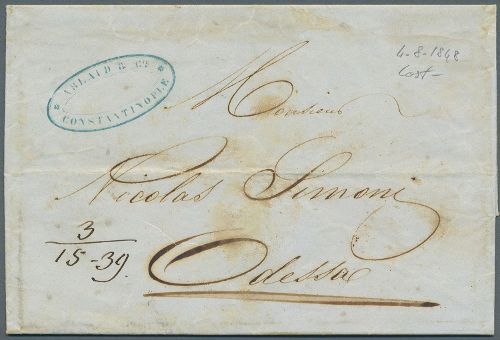 * ABLAID & Cº *
CONSTANTINOPLE
4-8-1848
Cost-
Monsieur
Nicolas Simoni
3
15-39.
Odessa